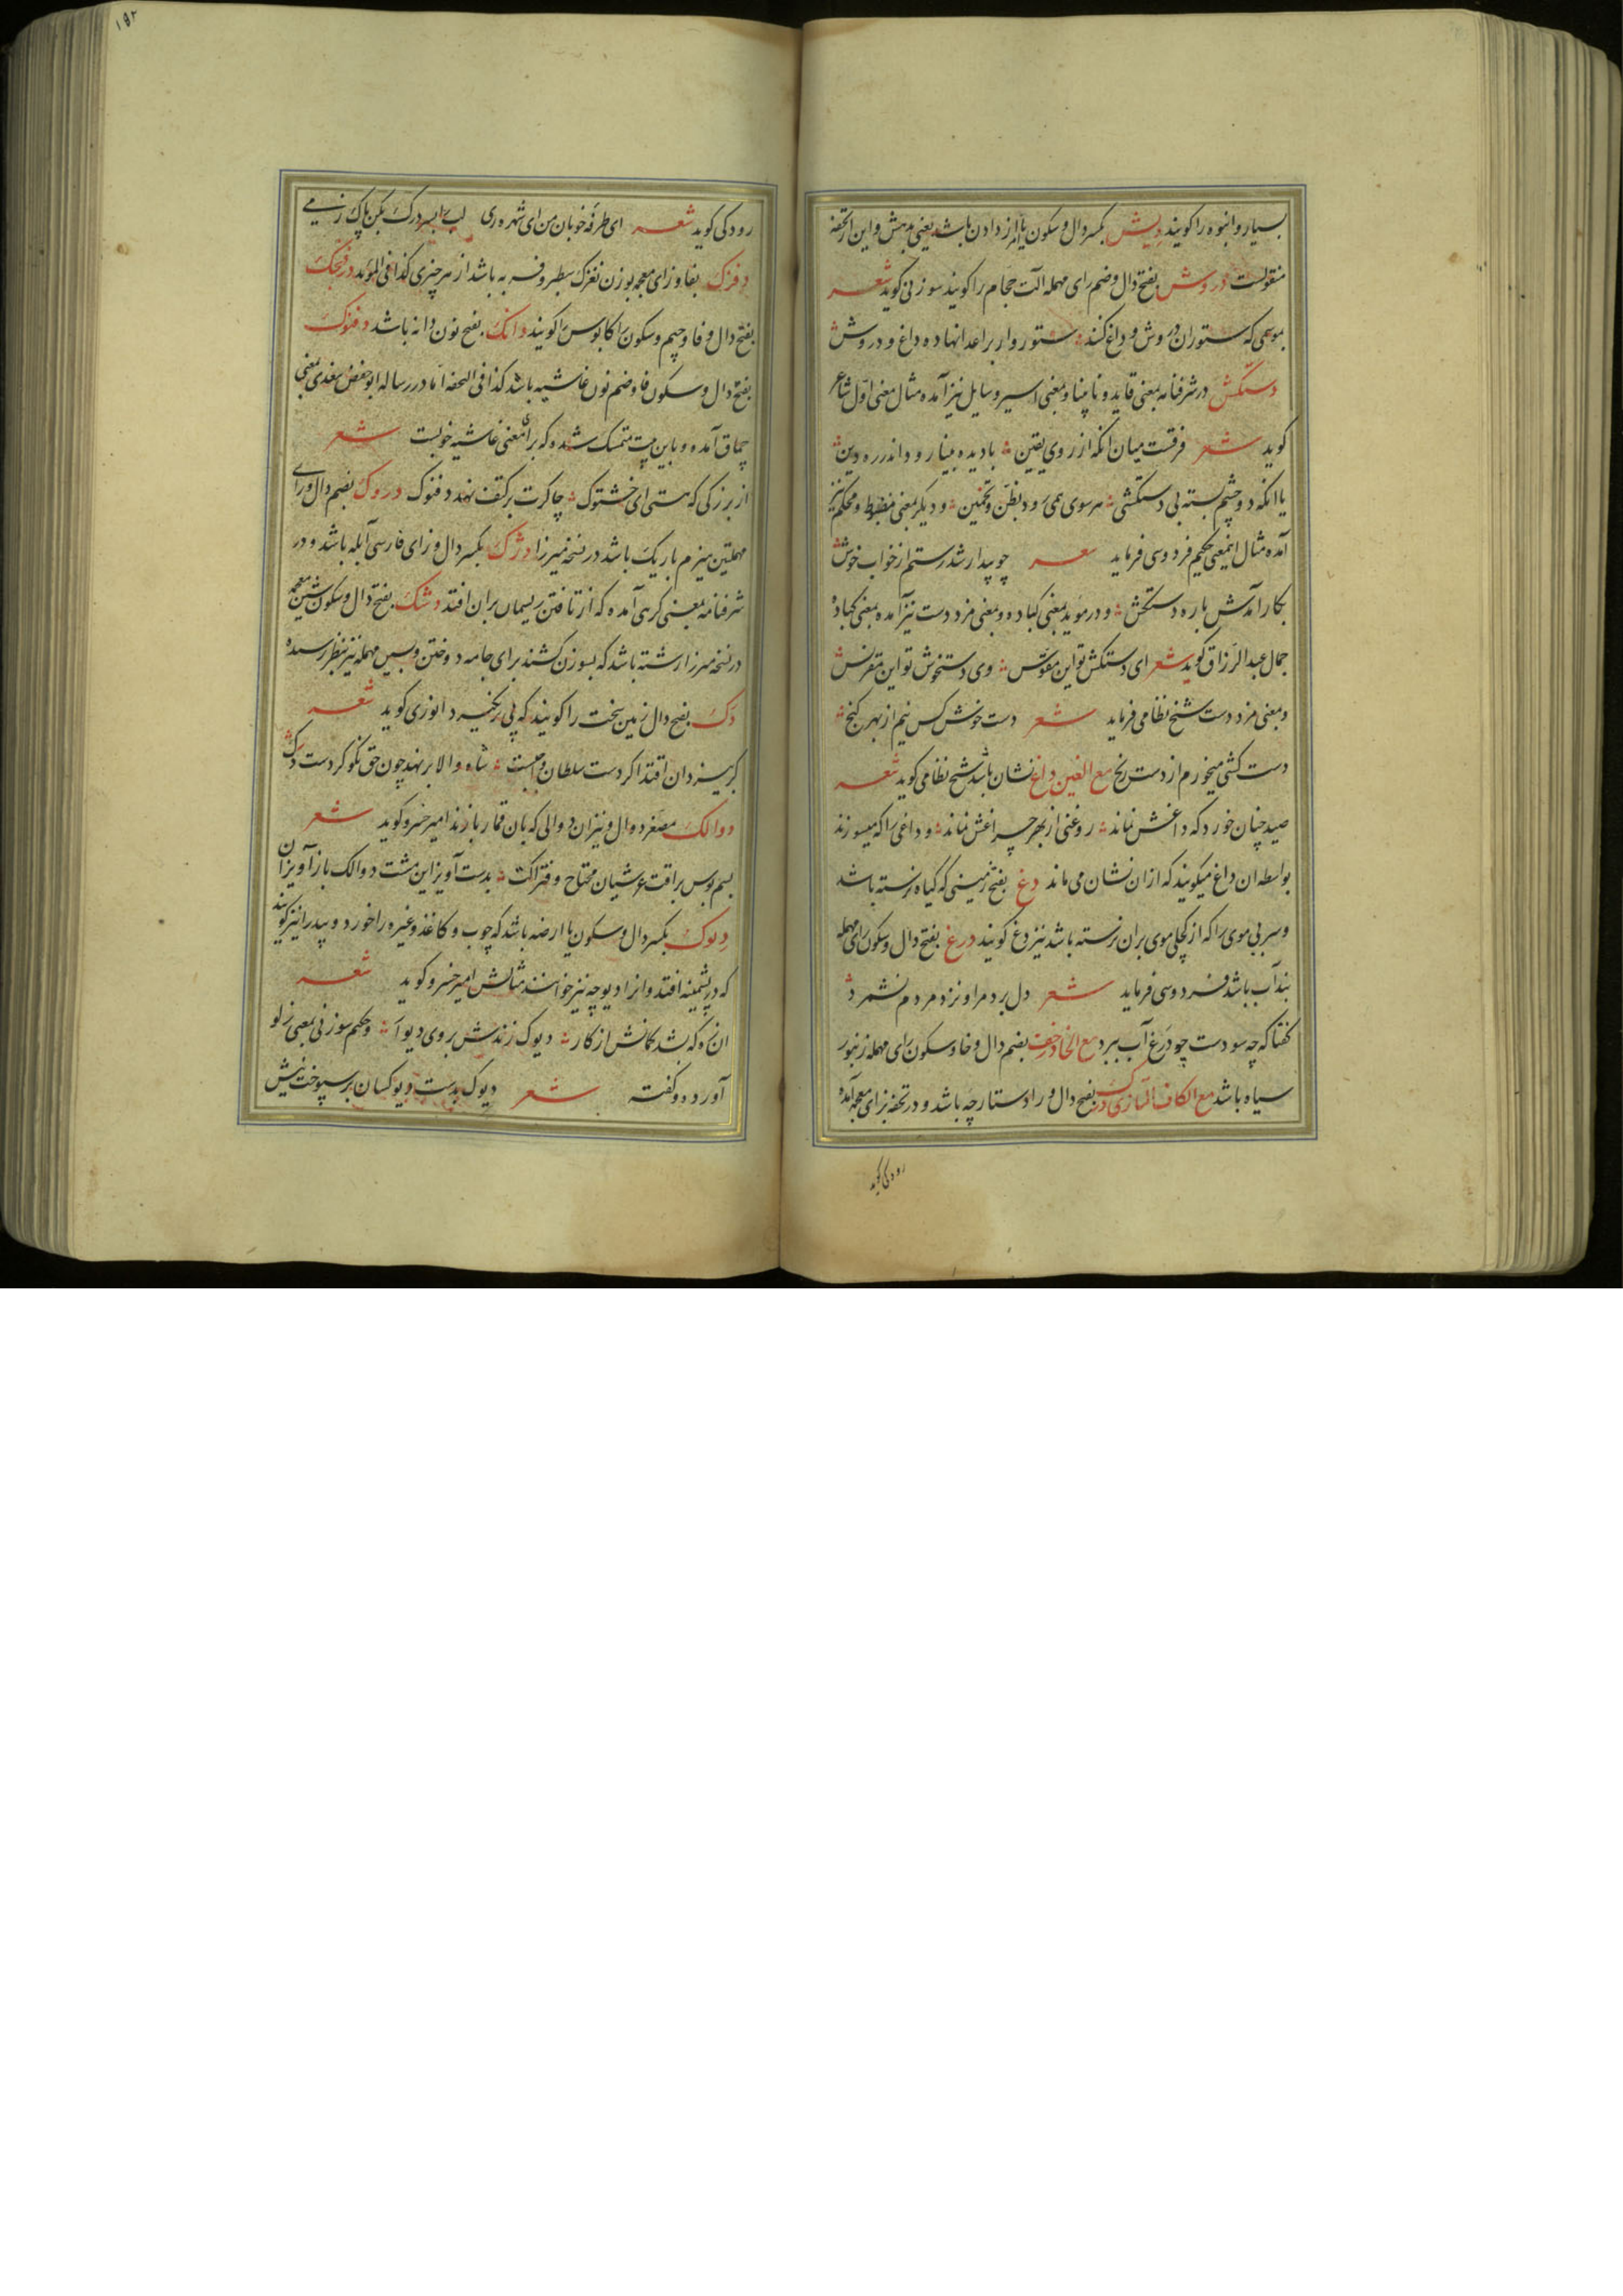 بسیار و انبوه را کویند دیش بکسر دال و سکون یا امر از دادن باشد یعنی بدهش و این از تحفه
منقولست دروش بفتح دال و ضم رای مهمله آلت حجام را کویند سوزنی کوید شعر
بموسمی که ستوران دروش و داغ کنند ستوروار بر اعدا نهاده داغ و دروش
دستکش در شرفنامه بمعنی قاید و نابینا و بمعنی اسیر و سایل نیز آمده مثال معنی اول شاعر
کوید شعر فرقست میان انکه از روی یقین با دیده بینا رود اندر ره دین
یا انکه دو چشم بسته بی دستکشی هر سوی همی رود بظن و تخمین و دیکر بمعنی مضبوط و محکم نیز
آمده مثال اینمعنی حکیم فردوسی فرماید شعر چو بیدار شد رستم از خواب خوش
بکار آمدش باره دستکش و در موید بمعنی کباده و بمعنی مزد دست نیز آمده بمعنی کباده
جمال عبدالرزاق کوید شعر ای دستکش تو این مقوس وی دستخوش تو این مقرنس
و بمعنی مزد دست شیخ نظامی فرماید شعر دست خوش کس نیم از بهر کنج
دست کشی میخورم از دست رنج مع الغین داغ نشان باشد شیخ نظامی کوید شعر
صید چنان خورد که داغش نماند روغنی از بهر چراغش نماند و داغی را که میسوزند
بواسطه ان داغ میکویند که ازان نشان می ماند دغ بفتح زمینی که کیاه نرسته باشد
و سر بی موی را که از کچلی موی بران نرسته باشد نیز دغ کویند درغ بفتح دال و سکون رای مهمله
بندآب باشد فردوسی فرماید شعر دل برد مرا و نزد مردم نشمرد
کفتا که چه سودست چو درغ آب ببرد مع الخا درخف بضم دال و خا و سکون رای مهمله زنبور
سیاه باشد مع الکاف التازی درک بفتح دال و را دستارچه باشد و در تحفه بزای معجمه آمده
رودکی کوید
۱۵۲
رودکی کوید شعر ای طرفه خوبان من ای شهره ری لب را بسر درک بکن پاک ز می
دفزک بفا و زای معجمه بوزن نغزک سطبر و فربه باشد از هر چیزی کذا فی الموید درفنجک
بفتح دال و فا و جیم و سکون را کابوس را کویند دانک بفتح نون دانه باشد دفنوک
بفتح دال و سکون فا و ضم نون غاشیه باشد کذا فی التحفه اما در رساله ابو حفص سغدی بمعنی
چماق آمده و باین بیت متمسک شده که برای معنی غاشیه خوبست شعر
از بزرکی که هستی ای خشتوک چاکرت بر کتف نهد دفنوک دروک بضم دال و رای
مهملتین هیزم باریک باشد در نسخه میرزا دژک بکسر دال و زای فارسی آبله باشد و در
شرفنامه بمعنی کرهی آمده که از تافتن ریسمان بران افتد دشک بفتح دال و سکون شین معجمه
در نسخه میرزا رشته باشد که بسوزن کشند برای جامه دوختن و بسین مهمله نیز بنظر رسیده
دک بفتح دال زمین سخت را کویند که پی نکیرد انوری کوید شعر
کر بیزدان اقتدا کردست سلطان واجبست شاه والا بر نهد چون حق نکو کردست دک
دوالک مصغر دوال و نیز ان دوالی که بان قمار بازند امیر خسرو کوید شعر
بسم بوس براقت عرشیان محتاج و فتراکت بدست آویز این مشت دوالک باز آویزان
دیوک بکسر دال و سکون یا ارضه باشد که چوب و کاغذ و غیره را خورد و بید را نیز کویند
که در پشمینه افتد و انرا دیوچه نیز خوانند مثالش امیر خسرو کوید شعر
ان زه که شد کمانش از کار دیوک زندش بروی دیوار و حکیم سوزنی بمعنی زلو
آورده و کفته شعر دیوک بدست دیوکسان بر سپوخت نیش